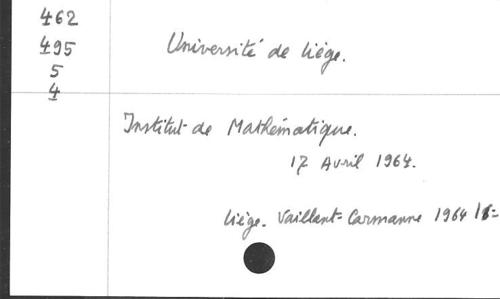 462
495
5
4
Université de Liège.
Institut de Mathématique.
17 Avril 1964.
Liège. Vaillant-Carmanne 1964